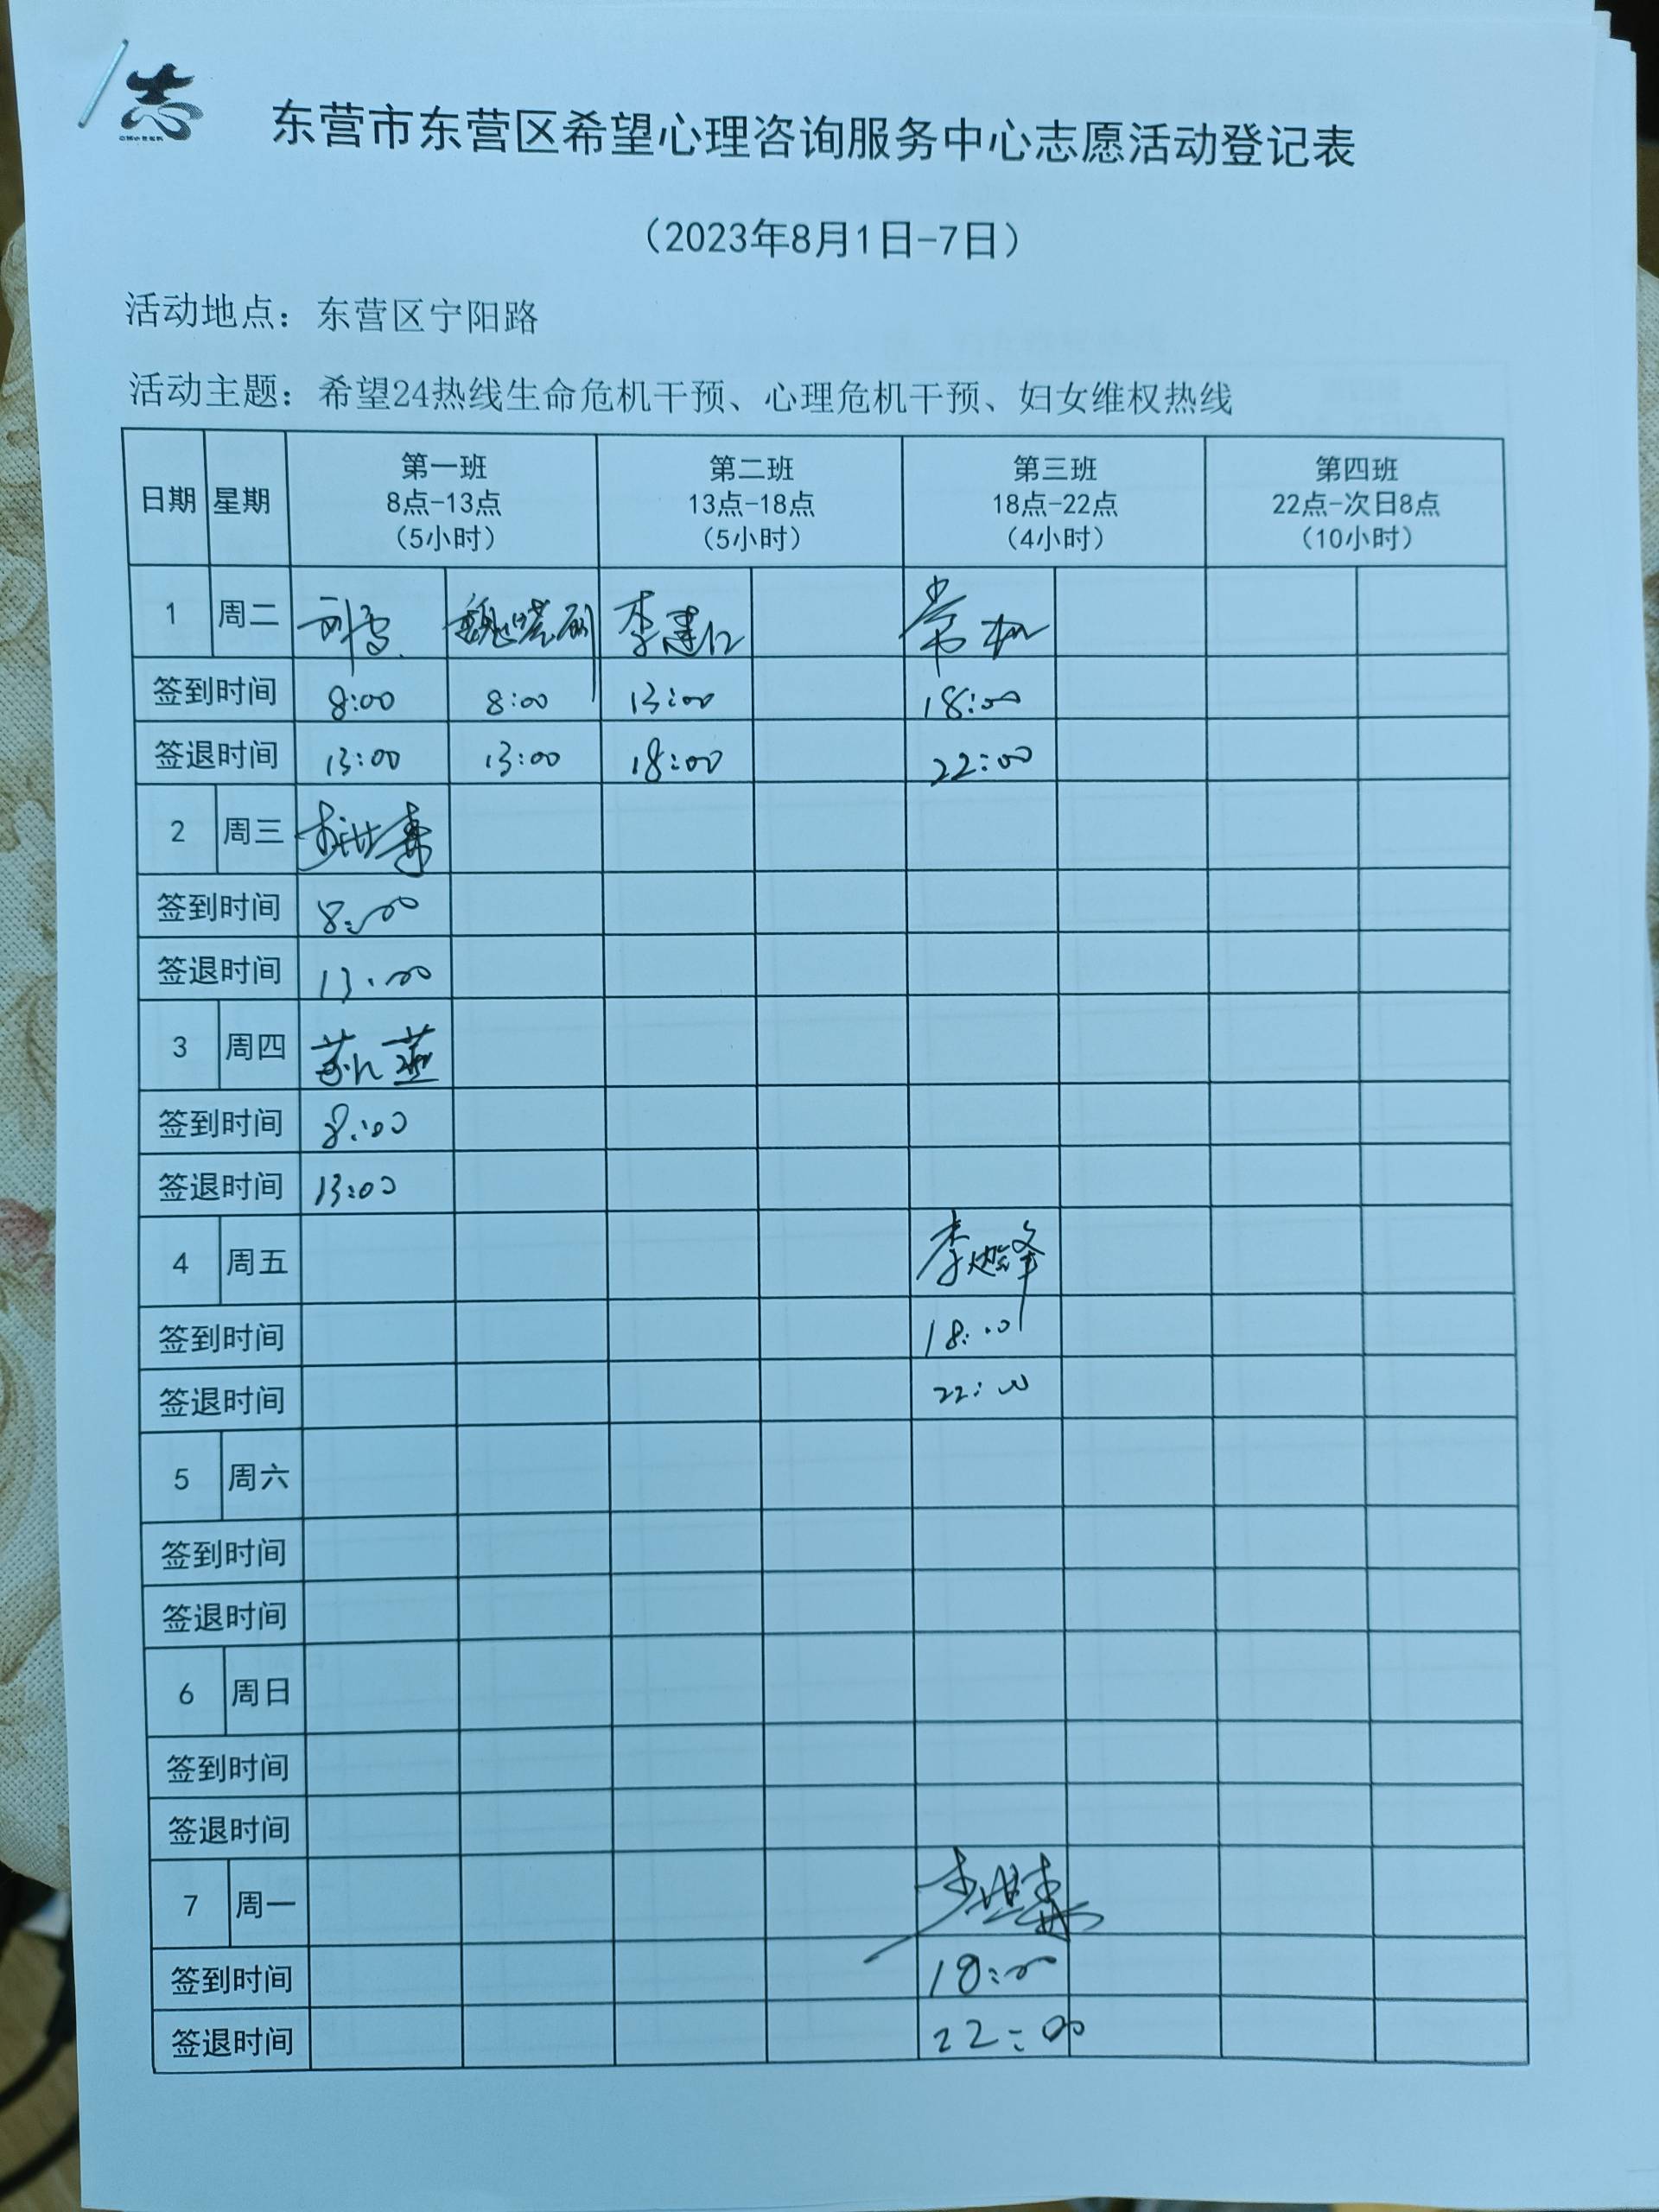 志
东营市东营区希望心理咨询服务中心志愿活动登记表
（2023年8月1日-7日）
活动地点：东营区宁阳路
活动主题：希望24热线生命危机干预、心理危机干预、妇女维权热线
日期 星期 第一班 8点-13点 （5小时） 第二班 13点-18点 （5小时） 第三班 18点-22点 （4小时） 第四班 22点-次日8点 （10小时）
1 周二 李建仁
签到时间 8:00 8:00 13:00 18:00
签退时间 13:00 13:00 18:00 22:00
2 周三
签到时间 8:00
签退时间 13:00
3 周四
签到时间 8:00
签退时间 13:00
4 周五
签到时间 18:00
签退时间 22:00
5 周六
签到时间
签退时间
6 周日
签到时间
签退时间
7 周一
签到时间 18:00
签退时间 22:00